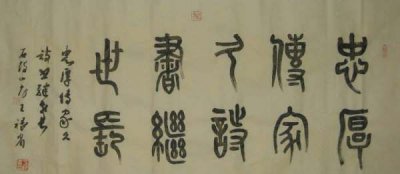 忠厚
傳家
久詩
書繼
世長
忠厚傳家久
詩書繼世長